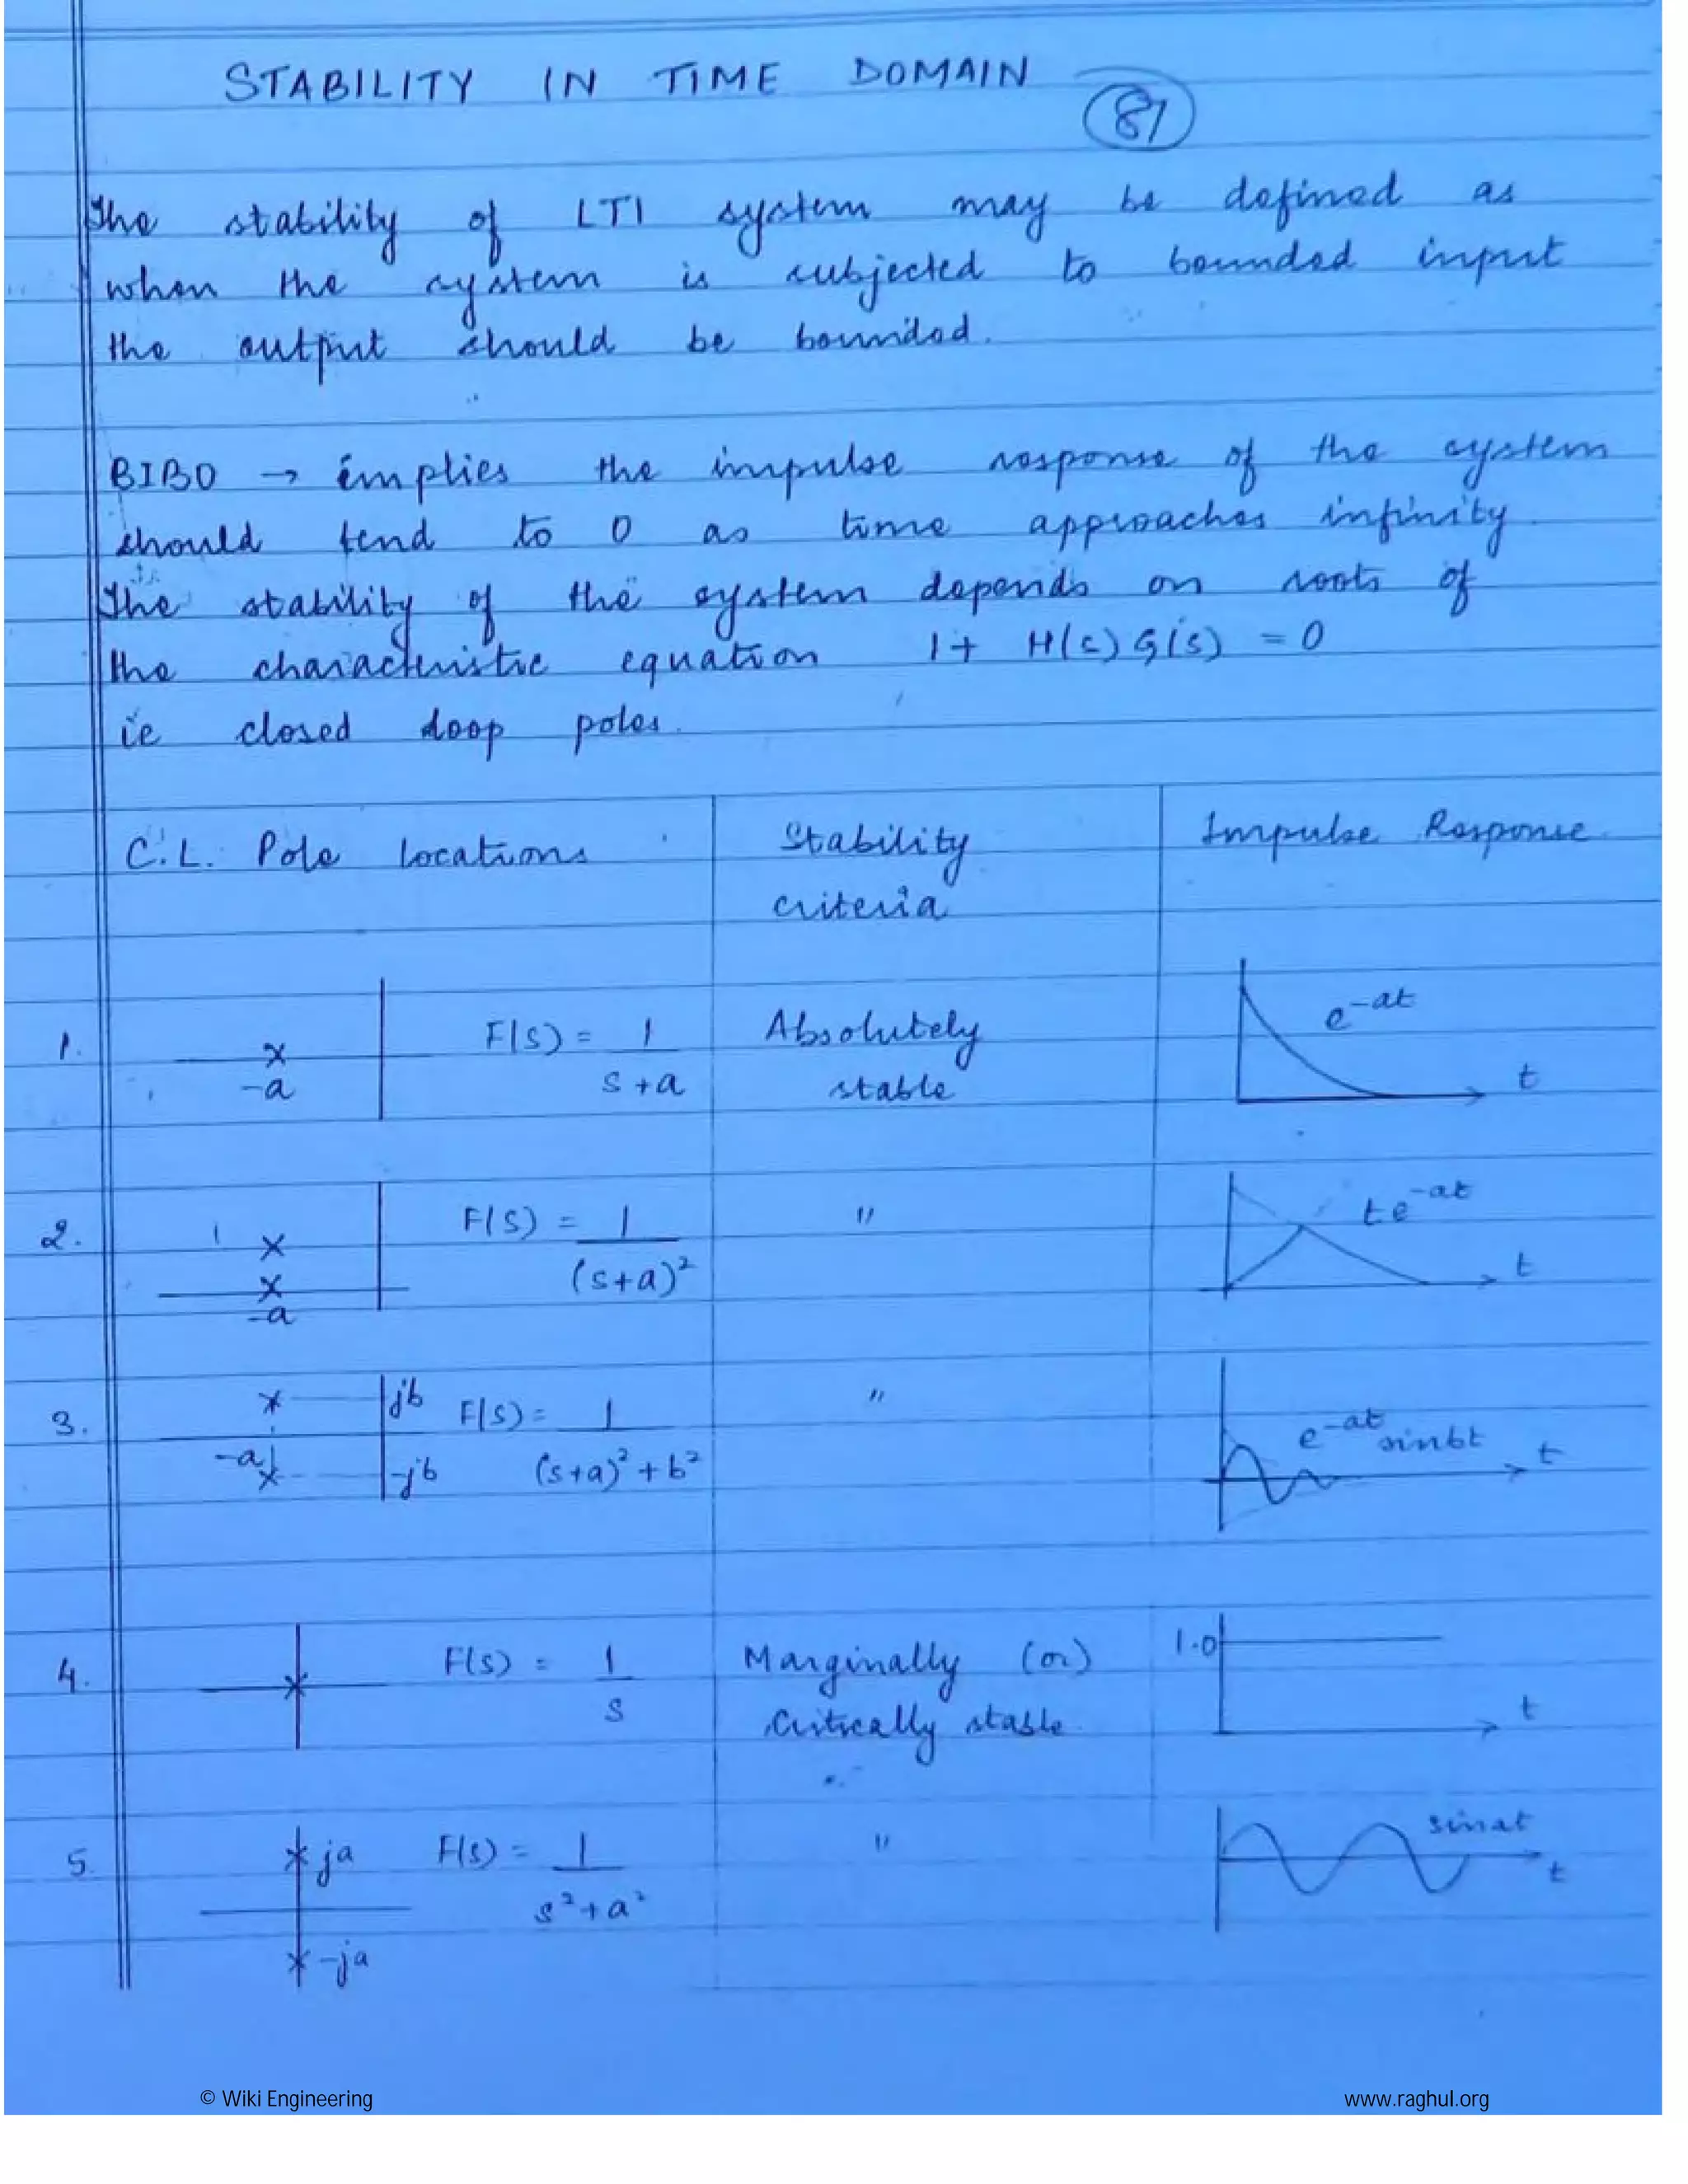 STABILITY IN TIME DOMAIN
81
The stability of LTI system may be defined as
when the system is subjected to bounded input
the output should be bounded.
BIBO → implies the impulse response of the system
should tend to 0 as time approaches infinity.
The stability of the system depends on roots of
the characteristic equation 1 + H(s) G(s) = 0
ie closed loop poles.
C.L. Pole locations Stability Impulse Response
criteria
e^-at
1. F(s) = 1 Absolutely
x
-a s+a stable t
te^-at
2. x F(s) = 1 "
x (s+a)² t
-a
3. x jb F(s) = 1 " e^-at sinbt t
-a x -jb (s+a)² + b²
4. x F(s) = 1 Marginally (or) 1.0
s Critically stable t
5. x ja F(s) = 1 " sinat
t
s²+a²
x -ja
© Wiki Engineering www.raghul.org